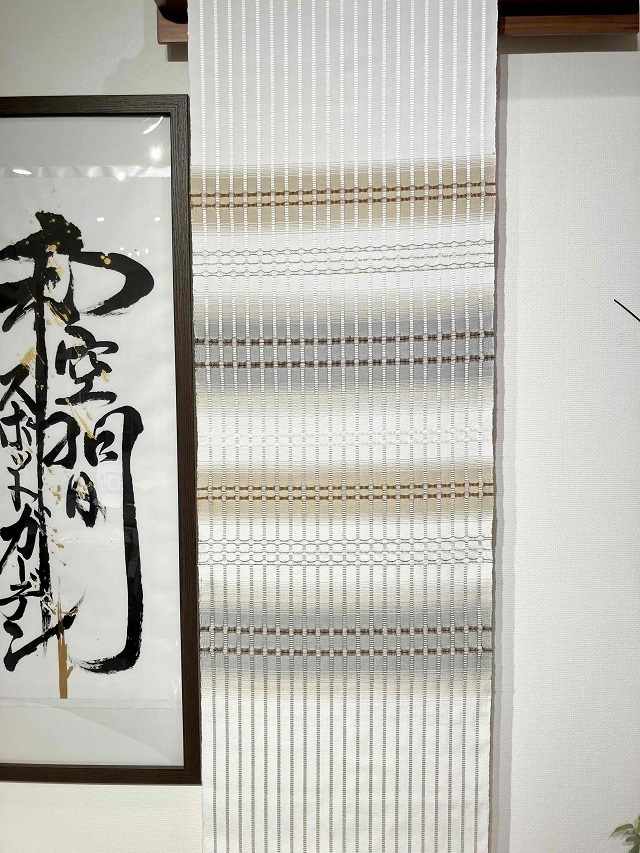 和
空間
スポットガーデン